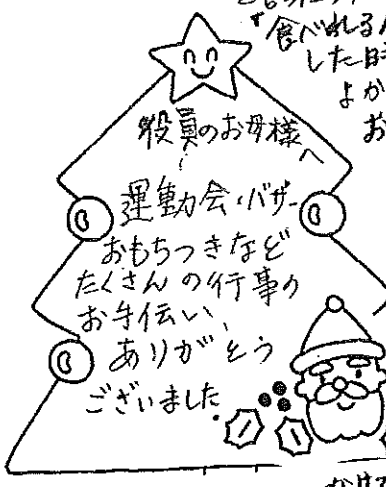 食べれる
した
よか
お
役員のお母様
へ
運動会・バザー
おもちつきなど
たくさんの行事の
お手伝い、
ありがとう
ございました。